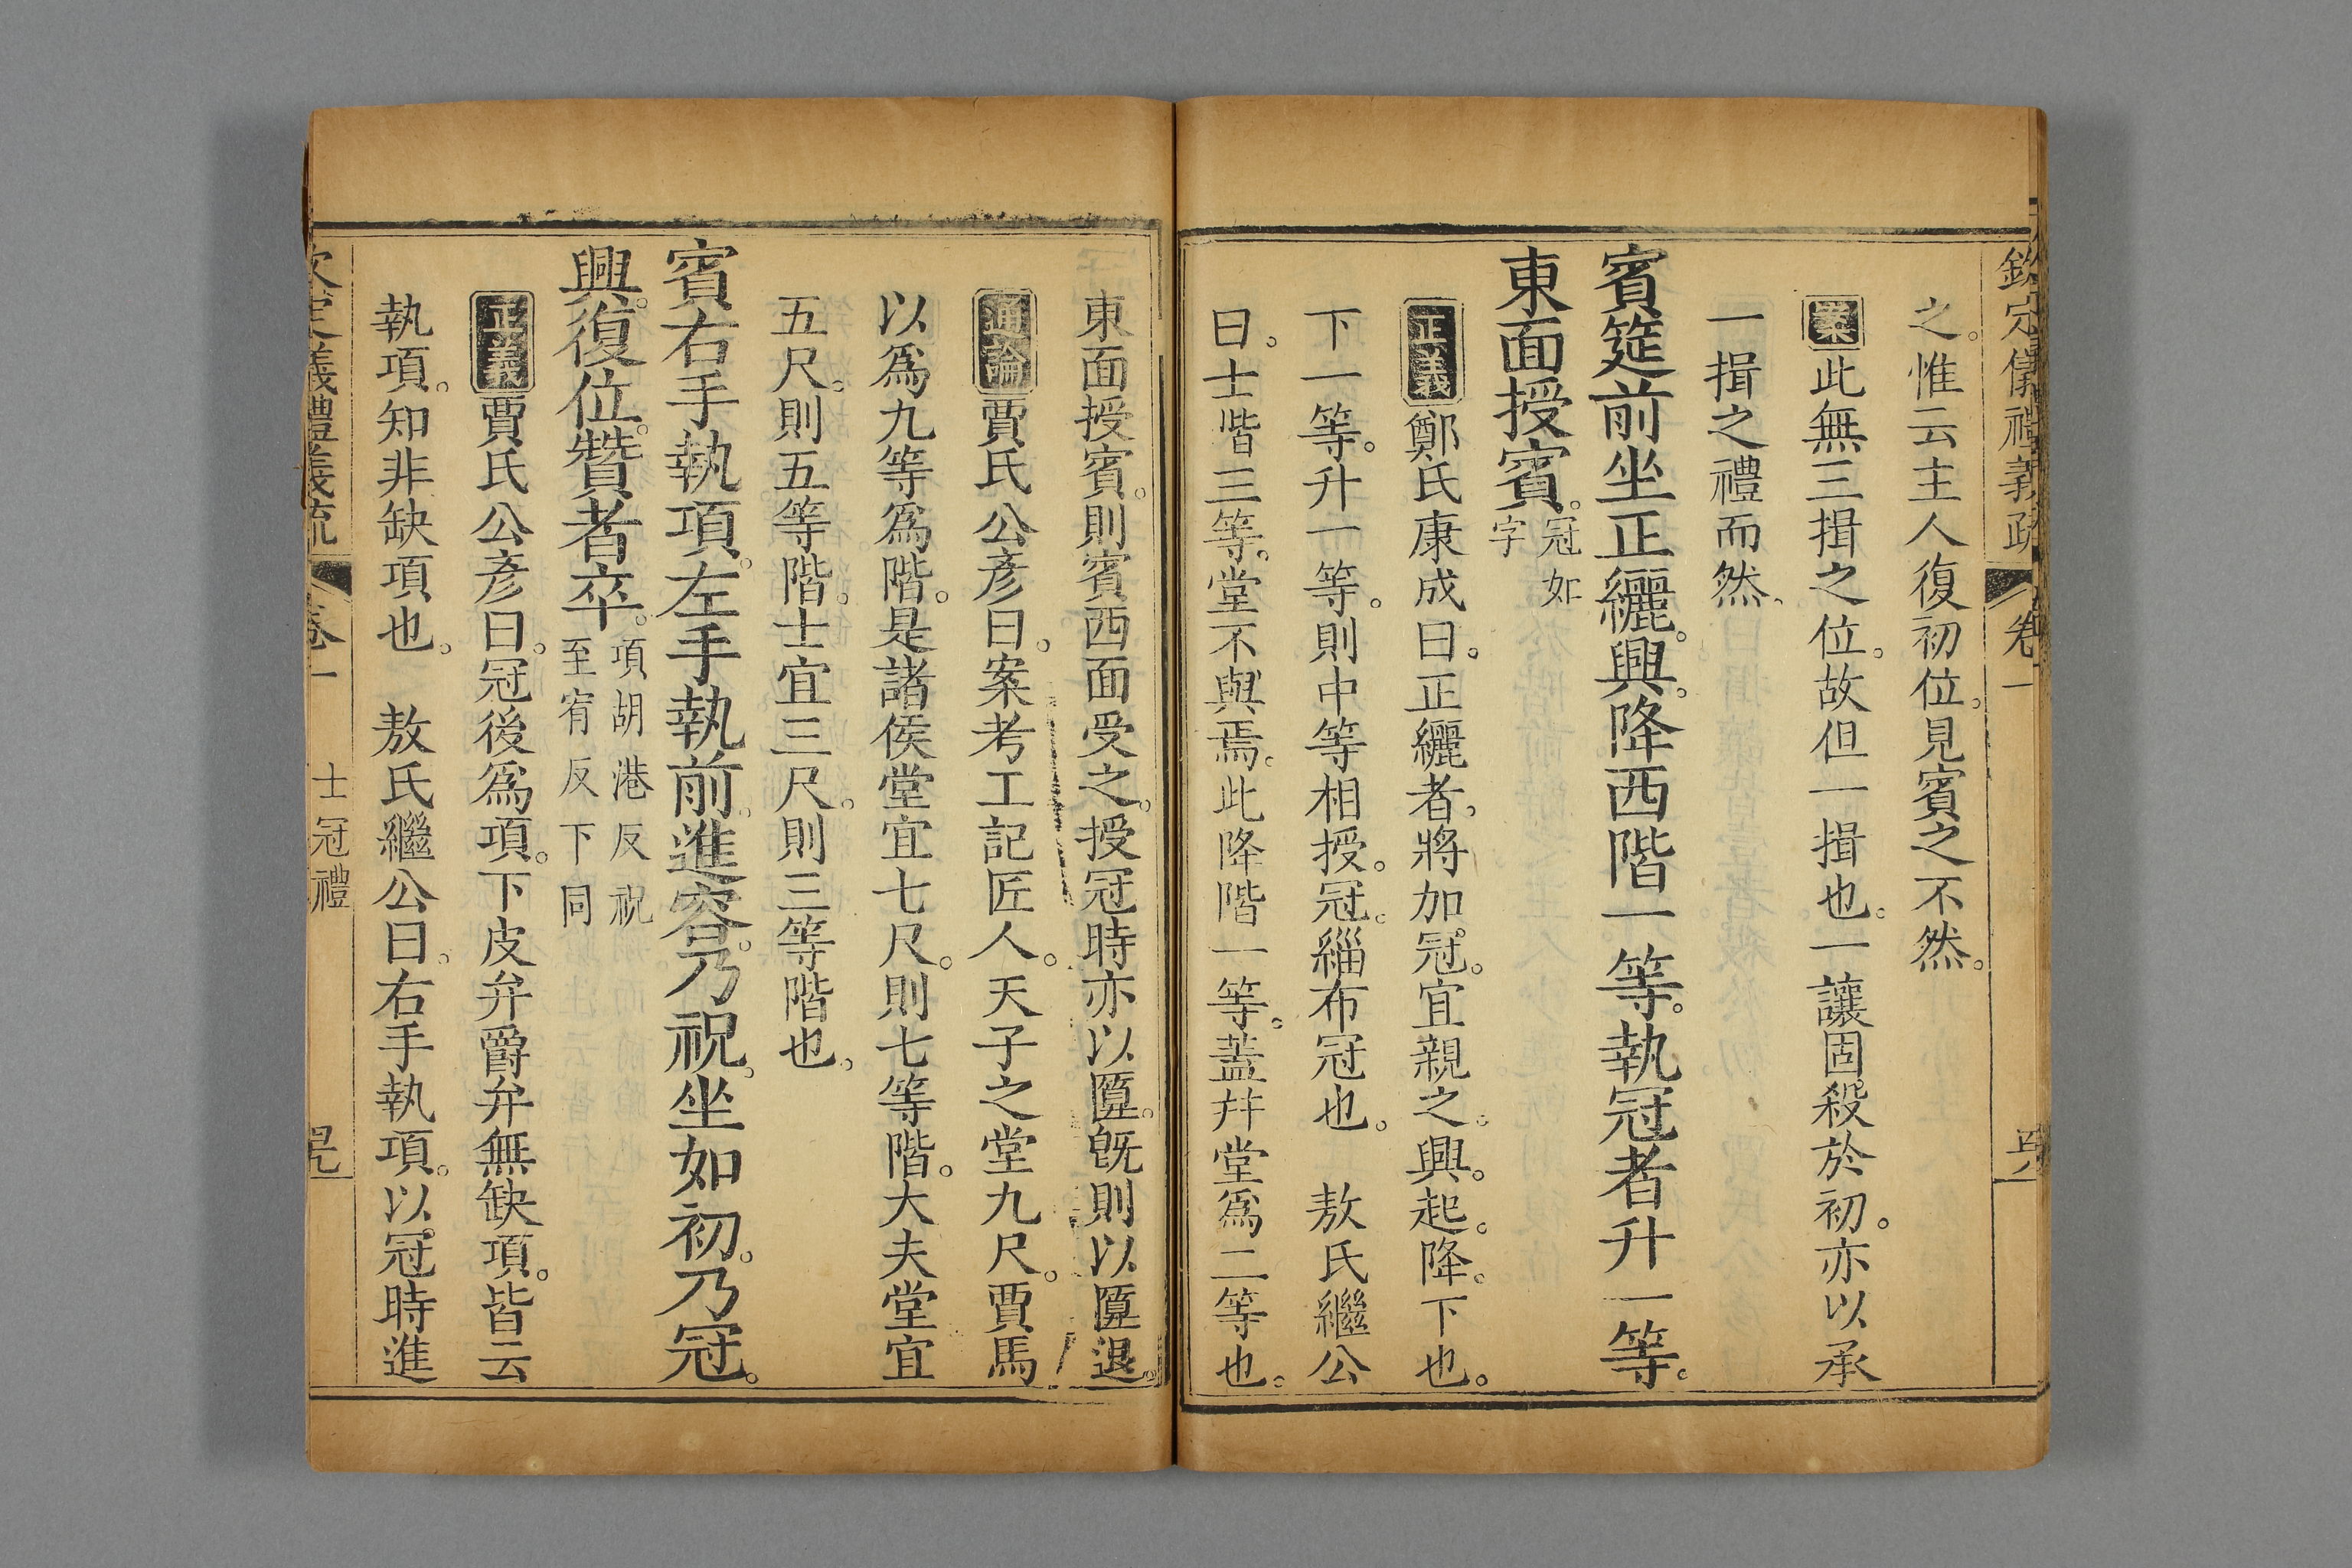 欽定儀禮義疏 卷一
之。惟云主人復初位。見賓之不然。
案此無三揖之位。故但一揖也。一讓固殺於初。亦以承
一揖之禮而然。
賓筵前坐正纚。興。降西階一等。執冠者升一等。
東面授賓。冠如字
正義鄭氏康成曰。正纚者。將加冠。宜親之。興。起。降。下也。
下一等。升一等。則中等相授。冠。緇布冠也。 敖氏繼公
曰。士階三等。堂不與焉。此降階一等。蓋幷堂爲二等也。
東面授賓。則賓西面受之。授冠時亦以匴。旣則以匴退。
通論賈氏公彥曰。案考工記匠人。天子之堂九尺。賈馬
以爲九等爲階。是諸侯堂宜七尺。則七等階。大夫堂宜
五尺。則五等階。士宜三尺。則三等階也。
賓右手執項。左手執前。進容。乃祝。坐如初。乃冠。
興。復位。贊者卒。項胡港反祝至宥反下同
正義賈氏公彥曰。冠後爲項。下皮弁爵弁無缺項。皆云
執項。知非缺項也。 敖氏繼公曰。右手執項。以冠時進
欽定儀禮義疏 卷一 士冠禮